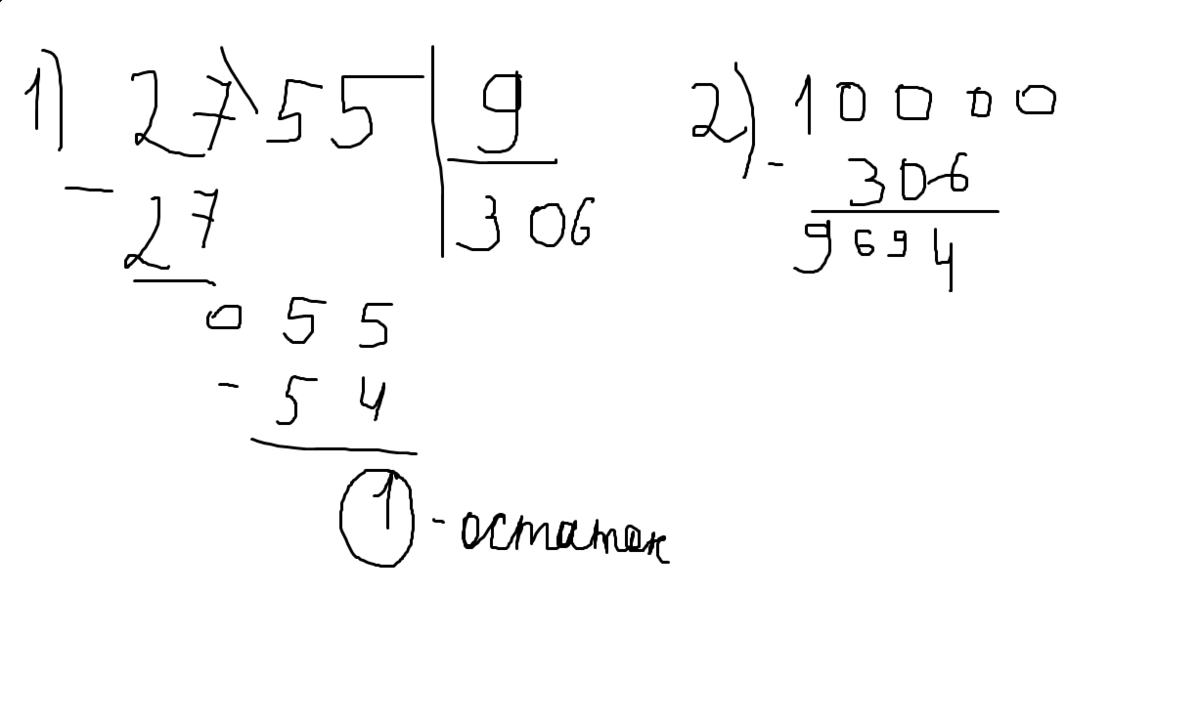 1) 2755 9
- 27 306
055
- 54
1 - остаток
2) 10000
- 306
9694